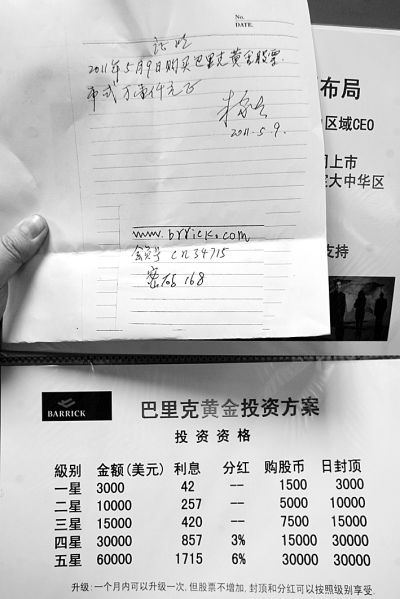 No.
DATE.
证明
2011年5月9日购买巴里克黄金股票.
2011.5.9.
布局
区域CEO
上市
大中华区
支持
www.brrick.com
会员号 cn34715
168
BARRICK
巴里克黄金投资方案
投资资格
级别 金额(美元) 利息 分红 购股币 日封顶
一星 3000 42 -- 1500 3000
二星 10000 257 -- 5000 10000
三星 15000 420 -- 7500 15000
四星 30000 857 3% 15000 30000
五星 60000 1715 6% 30000 30000
升级: 一个月内可以升级一次, 但股票不增加, 封顶和分红可以按照级别享受.